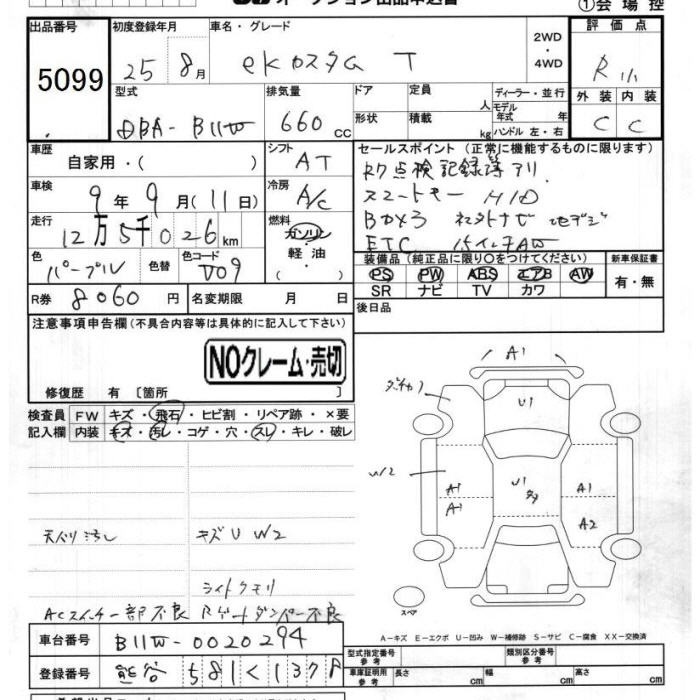 オークション出品申込書 ①会場控
出品番号 初度登録年月 車名・グレード 2WD ・ 4WD 評価点
5099 25 8月 eKカスタム T R
型式 排気量 ドア 定員 人 ディーラー・並行 外装 内装
DBA-B11W 660 CC 形状 積載 kg モデル年式 年 ハンドル 左・右 C C
車歴 自家用・( ) シフト AT セールスポイント (正常に機能するものに限ります)
R7点検記録簿アリ
車検 9年9月(11日) 冷房 A/C スマートキー HID
走行 12万5千026km 燃料 ガソリン・軽油・( ) Bカメラ 社外ナビ 地デジ
ETC 15インチAW
色 パープル 色替 色コード 装備品 (純正品に限り○をつけてください) 新車保証書
PS PW ABS エアB AW 有・無
SR ナビ TV カワ
R券 8060円 名変期限 月 日 後日品
注意事項申告欄(不具合内容等は具体的に記入して下さい)
NOクレーム・売切
修復歴 有 〔箇所 〕
検査員記入欄 FW キズ・飛石・ヒビ割・リペア跡・×要
内装 キズ・汚レ・コゲ・穴・スレ・キレ・破レ
A1
U1
W2
A1 U1 A1
A1 A2
天バリ汚れ キズ U W2
ライトクモリ
ACスイッチ一部不良 Rゲートダンパー不良
スペア
A-キズ E-エクボ U-凹み W-補修跡 S-サビ C-腐食 XX-交換済
車台番号 B11W-0020294
登録番号 熊谷 581 く 137
型式指定番号 参考 類別区分番号 参考
車庫証明用 参考 長さ cm 幅 cm 高さ cm